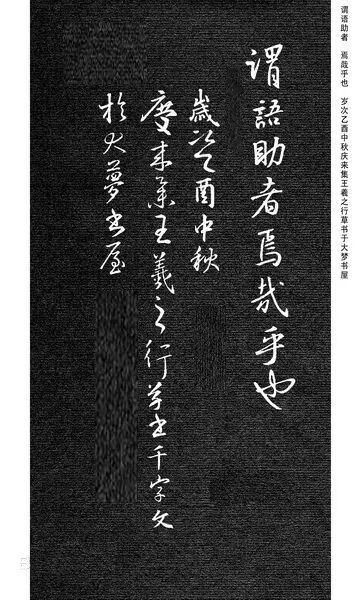 謂語助者焉哉乎也
歲次乙酉中秋
慶来集王羲之行草書千字文
於大夢書屋
谓语助者 焉哉乎也 岁次乙酉中秋庆来集王羲之行草书于大梦书屋